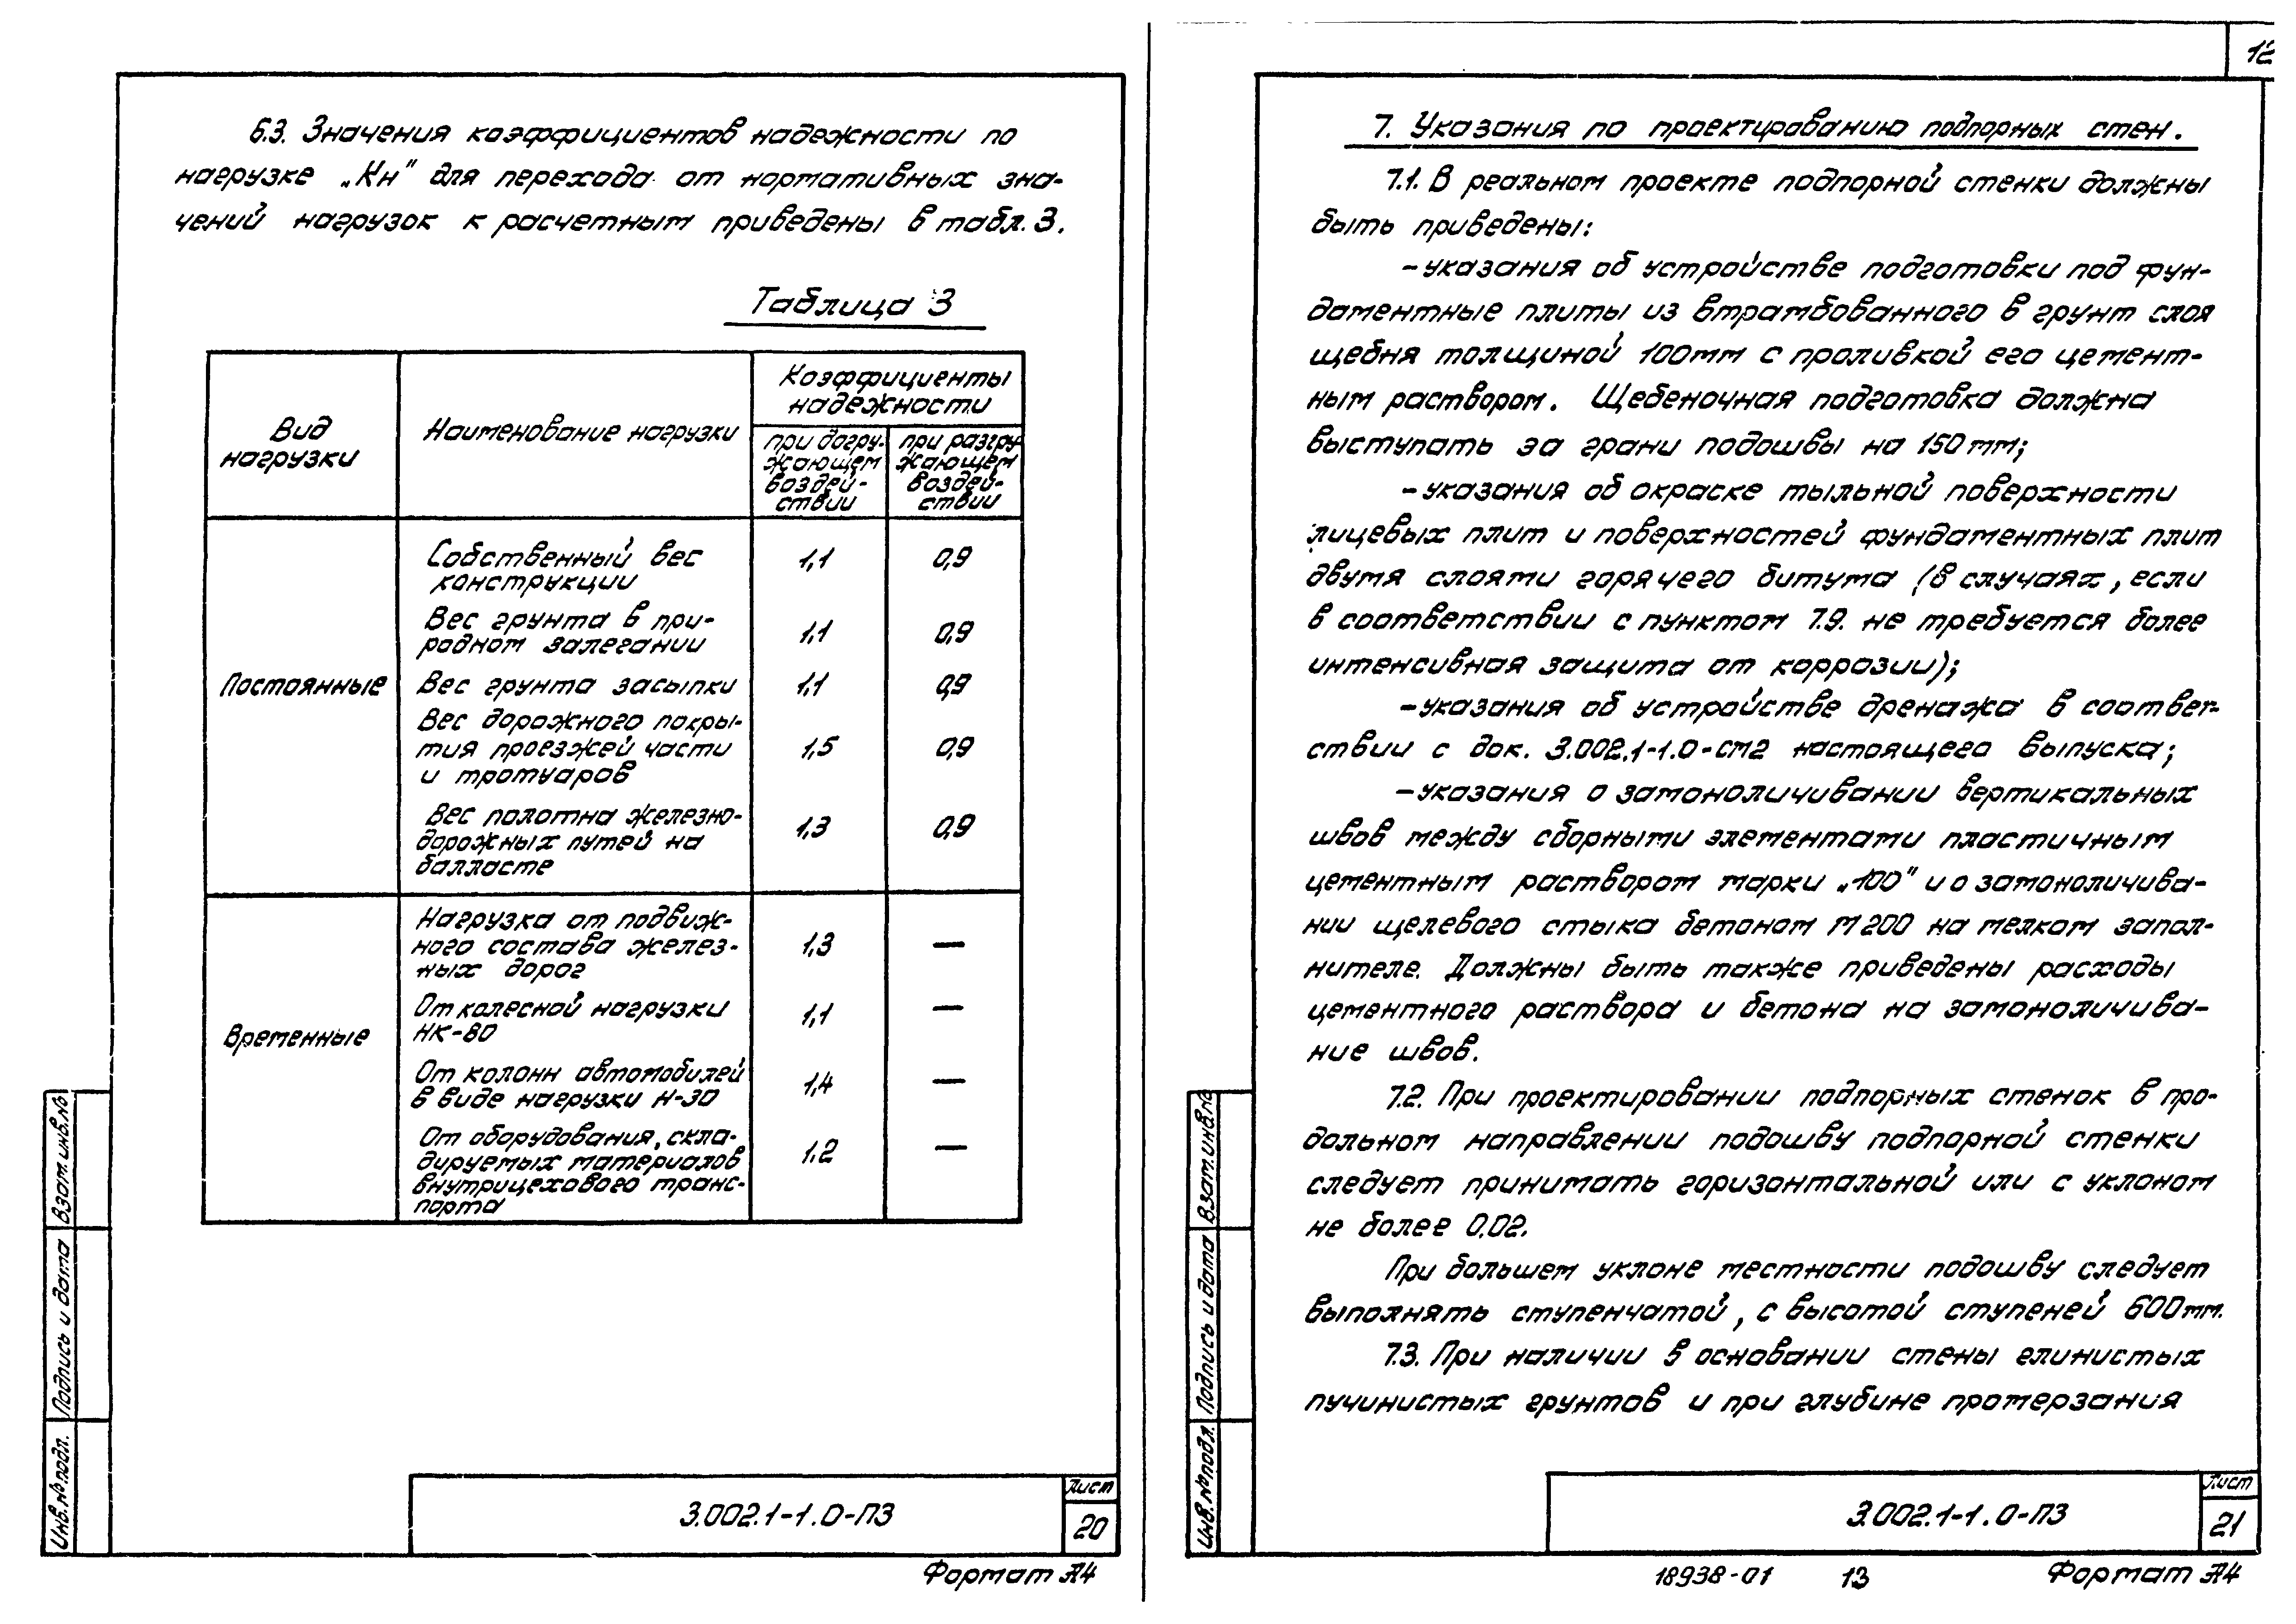 6.3. Значения коэффициентов надежности по
нагрузке „Кн" для перехода от нормативных зна-
чений нагрузок к расчетным приведены в табл. 3.
Таблица 3
Вид
нагрузки
Наименование нагрузки
Коэффициенты
надежности
при догру-
жающем
воздей-
ствии
при разгру
жающем
воздей-
ствии
Постоянные
Собственный вес
конструкции
1,1
0,9
Вес грунта в при-
родном залегании
1,1
0,9
Вес грунта засыпки
1,1
0,9
Вес дорожного покры-
тия проезжей части
и тротуаров
1,5
0,9
Вес полотна железно-
дорожных путей на
балласте
1,3
0,9
Временные
Нагрузка от подвиж-
ного состава желез-
ных дорог
1,3
—
От колесной нагрузки
НК-80
1,1
—
От колонн автомобилей
в виде нагрузки Н-30
1,4
—
От оборудования, скла-
дируемых материалов
внутрицехового транс-
порта
1.2
—
Взам. инв. №
Подпись и дата
Инв. № подл.
3.002.1-1.0-ПЗ
Лист
20
Формат А4
12
7. Указания по проектированию подпорных стен.
7.1. В реальном проекте подпорной стенки должны
быть приведены:
- указания об устройстве подготовки под фун-
даментные плиты из втрамбованного в грунт слоя
щебня толщиной 100мм с проливкой его цемент-
ным раствором. Щебеночная подготовка должна
выступать за грани подошвы на 150 мм;
- указания об окраске тыльной поверхности
лицевых плит и поверхностей фундаментных плит
двумя слоями горячего битума (в случаях, если
в соответствии с пунктом 7.9. не требуется более
интенсивная защита от коррозии);
- указания об устройстве дренажа в соответ-
ствии с док. 3.002.1-1.0-СМ2 настоящего выпуска;
- указания о замоноличивании вертикальных
швов между сборными элементами пластичным
цементным раствором марки „100" и о замоноличива-
нии щелевого стыка бетоном М200 на мелком запол-
нителе. Должны быть также приведены расходы
цементного раствора и бетона на замоноличива-
ние швов.
7.2. При проектировании подпорных стенок в про-
дольном направлении подошву подпорной стенки
следует принимать горизонтальной или с уклоном
не более 0.02.
При большем уклоне местности подошву следует
выполнять ступенчатой, с высотой ступеней 600 мм.
7.3. При наличии в основании стены глинистых
пучинистых грунтов и при глубине промерзания
Взам. инв. №
Подпись и дата
Инв. № подл.
3.002.1-1.0-ПЗ
Лист
21
18938-01
13
Формат А4